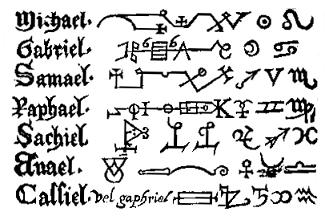 Michael. ☉ ♌
Gabriel. ☽ ♋
Samael. ♂ ♈ ♏
Raphael. ☿ ♊ ♍
Sachiel ♃ ♐ ♓
Anael. ♀ ♉ ♎
Cassiel vel gaphriel ♄ ♑ ♒